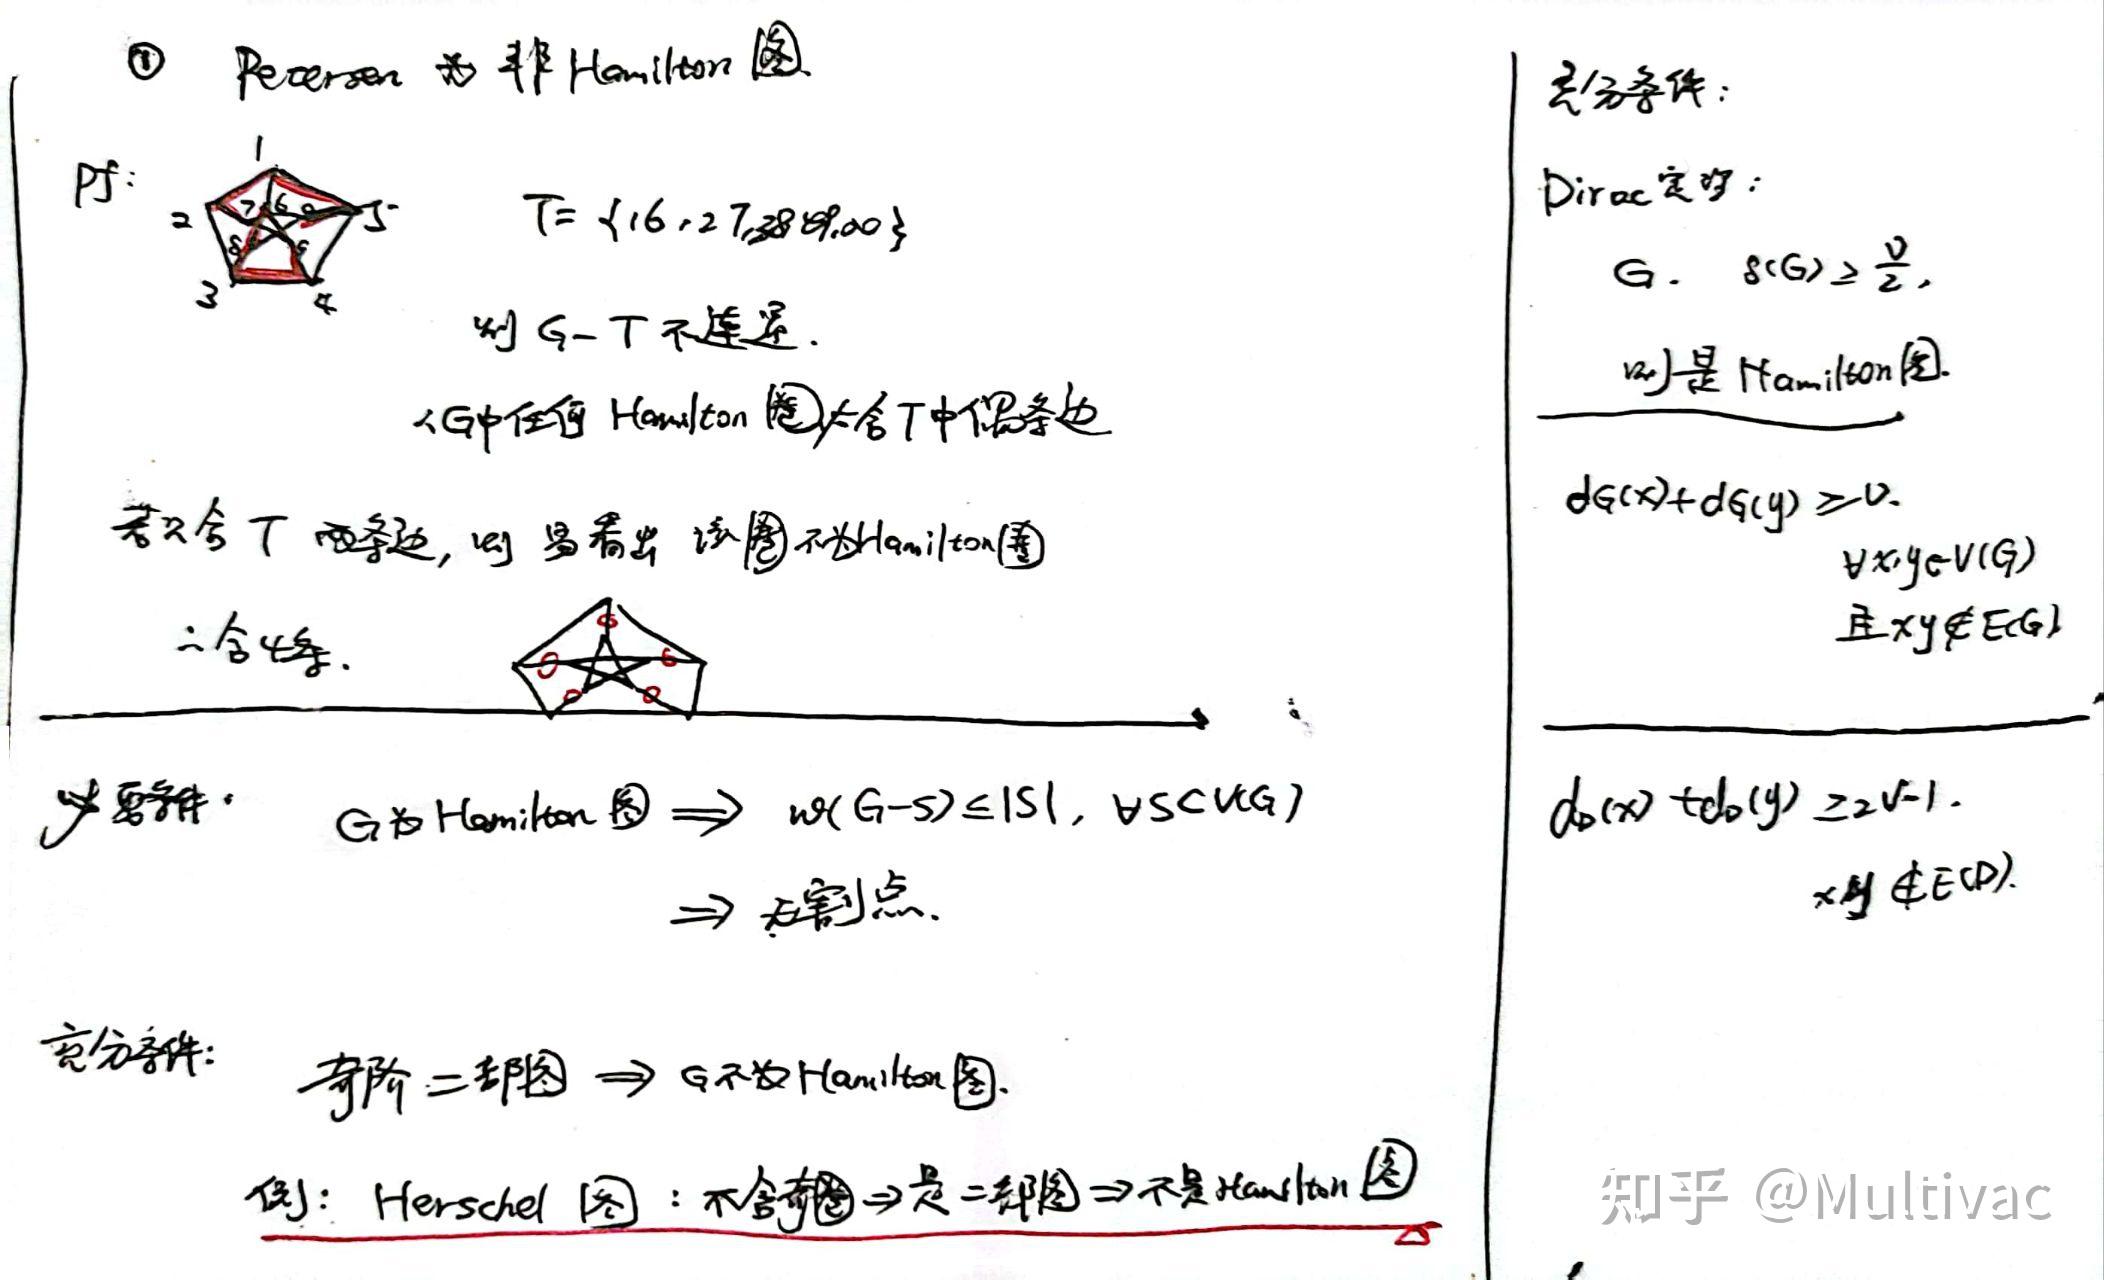 ① Petersen 为 非Hamilton 图
pf:
1
2
7 6 0
5
8 9
3
4
T= {16,27,38,49,50}
则 G-T 不连通.
∴G中任何 Hamilton 圈必含T中偶条边
若只含 T 两条边, 则 易看出 该圈不为Hamilton圈
∴含4条.
必要条件.
G为 Hamilton 图 ⇒ w(G-S)≤|S|, ∀S⊂V(G)
⇒ 无割点.
充分条件:
奇阶二部图 ⇒ G不为Hamilton图.
例: Herschel 图 : 不含奇圈⇒是二部图⇒不是Hamilton图
充分条件:
Dirac定理:
G. δ(G)≥ν/2,
则是 Hamilton图.
dG(x)+dG(y)≥ν.
∀x,y∈V(G)
且xy∉E(G)
dD(x)+dD(y)≥2ν-1.
xy∉E(D).
知乎 @Multivac